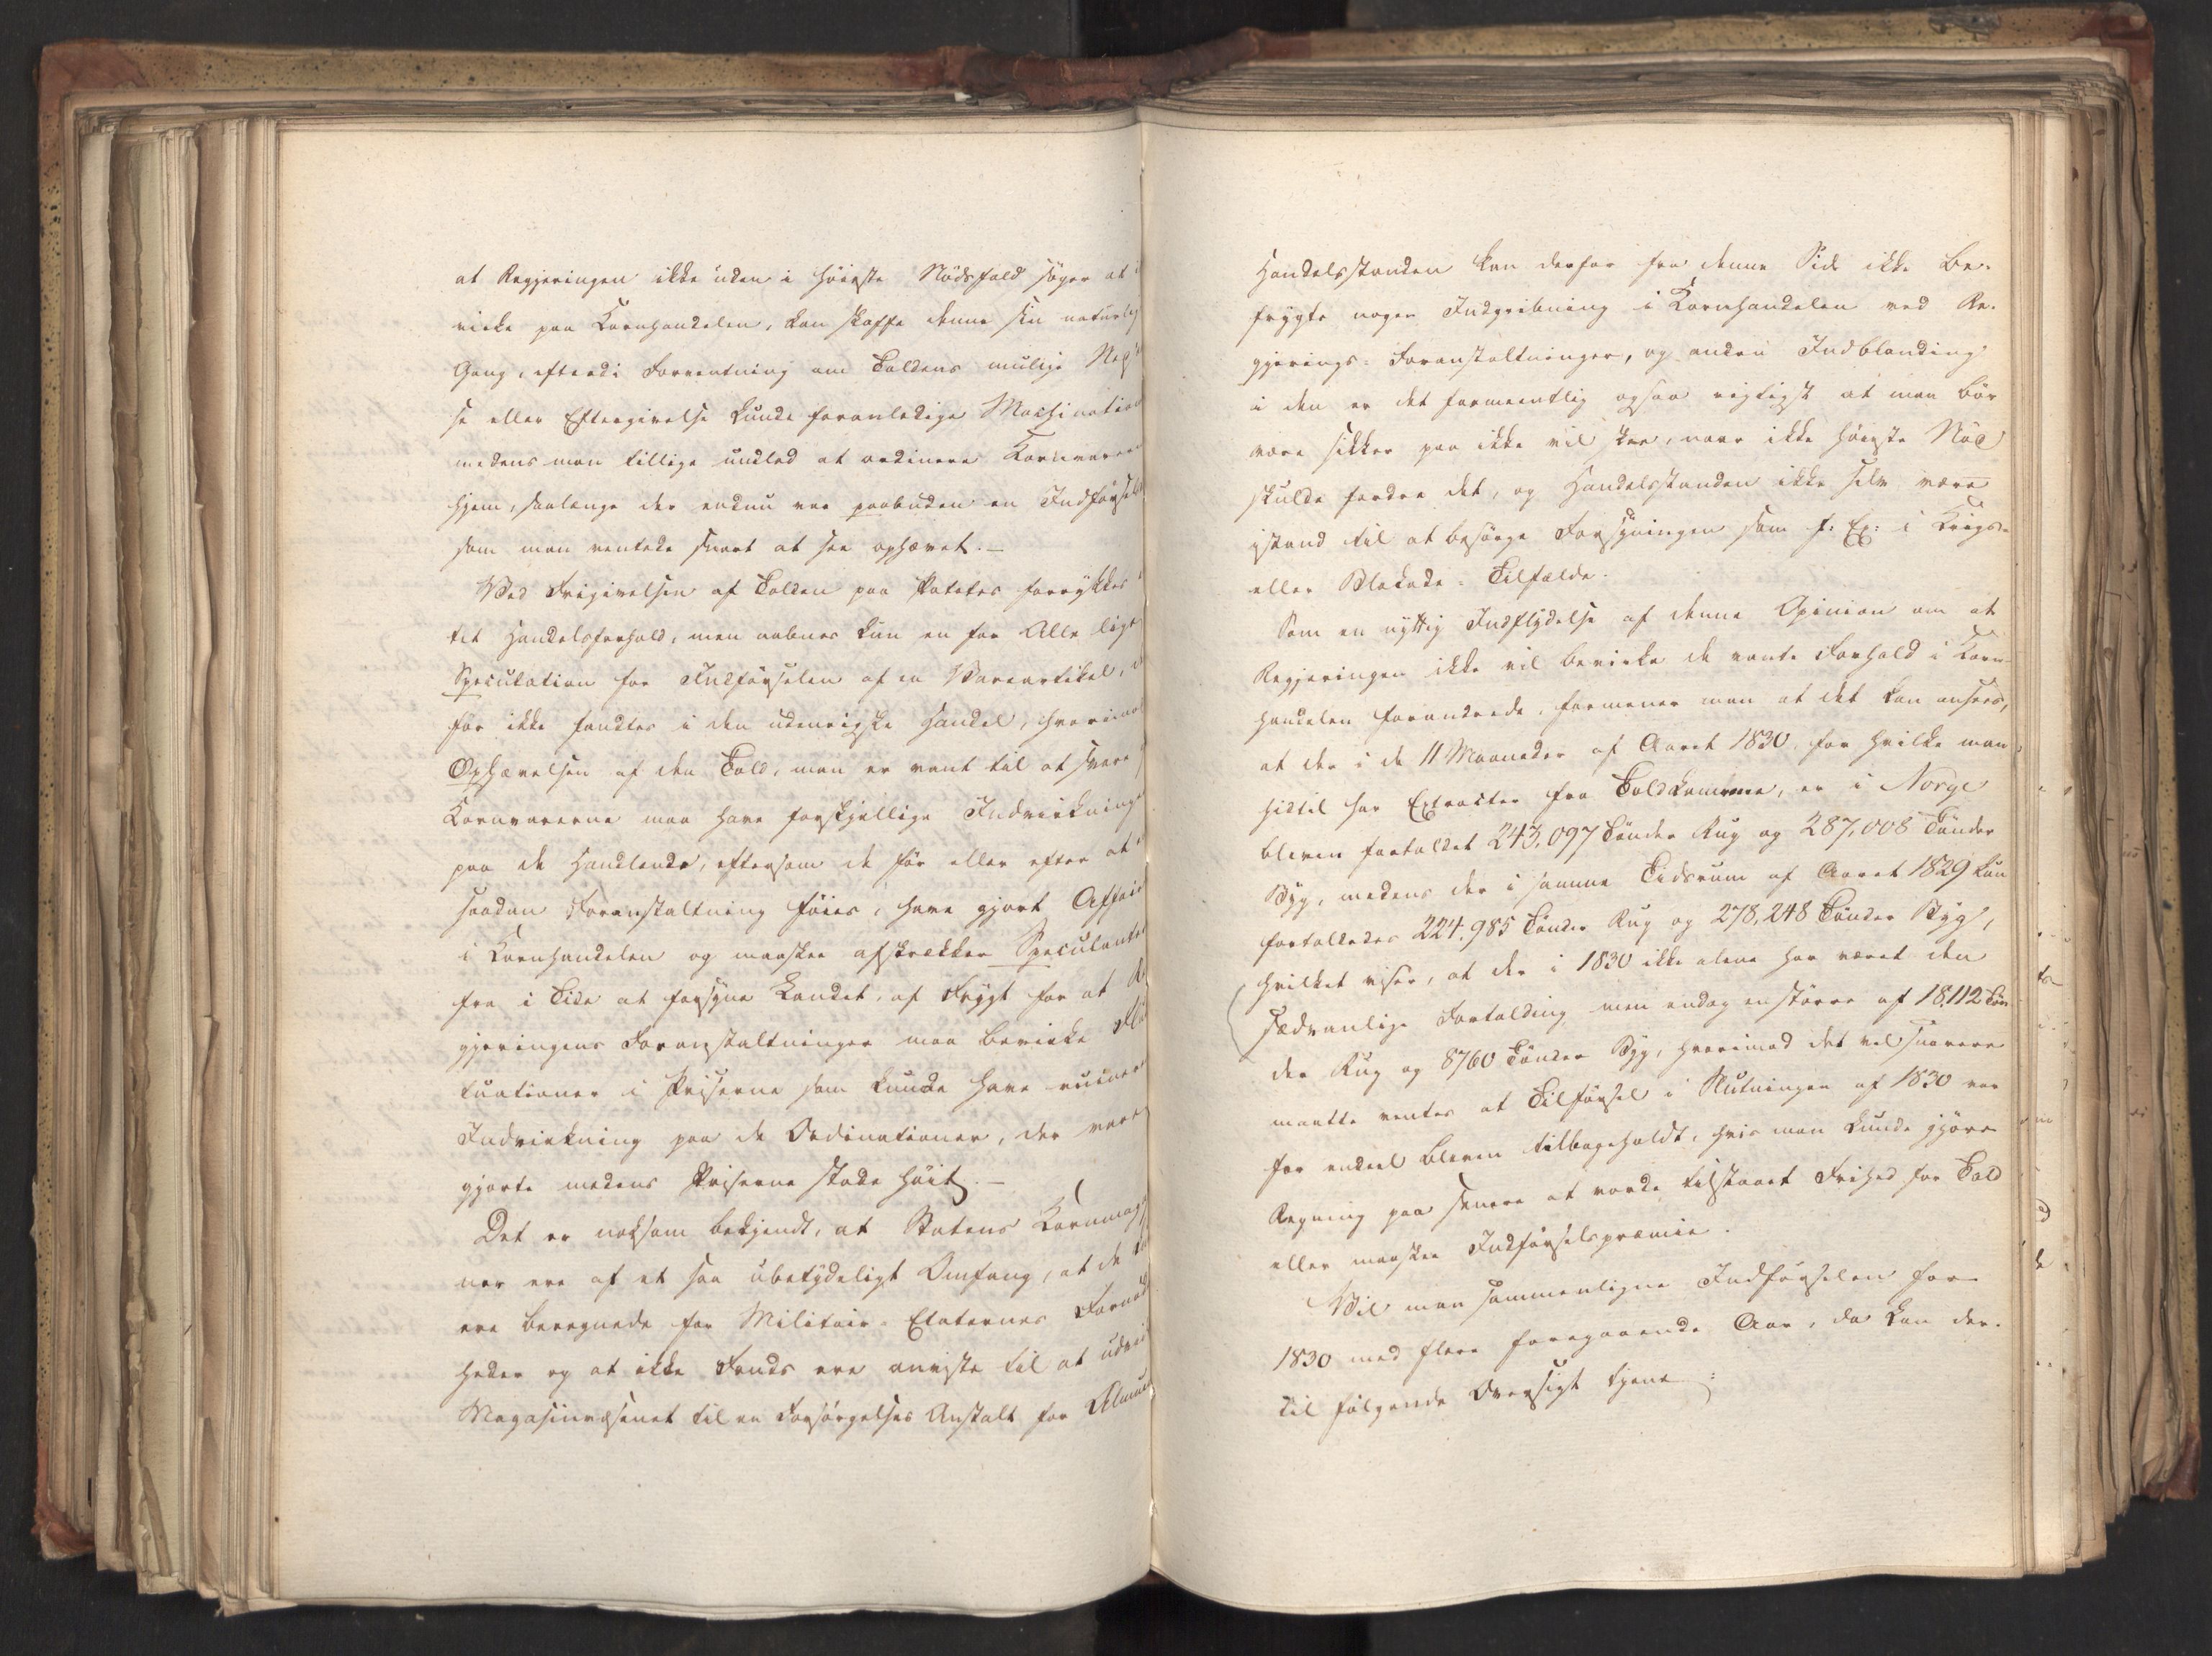 at Regjeringen ikke uden i høieste Nødsfald søger at
virke paa Kornhandelen, kan skaffe denne sin naturlig
Gang, efterdi Forventning om Toldens mulige Ned
se eller Eftergivelse kunde foranledige Machination
medens man tillige undlod at ordinere Kornvarer
hjem, saalænge der endnu var paabuden en Indførsel
som man ventede snart at see ophævet. —
Ved Frigivelsen af Tolden paa Poteter forrykkes
tet Handelsforhold, men aabnes kun en for Alle lige
Speculation for Indførselen af en Vareartikel,
før ikke fandtes i den udenrigske Handel, hvorimod
Ophævelsen af den Told, man er vant til at svare
Kornvarerne maa have forskjellige Indvirkninger
paa de Handlende, eftersom de før eller efter at
saadan Foranstaltning føies, have gjort Affair
i Kornhandelen og maaskee afskrækker Speculanter
fra i Tide at forsyne Landet, af Frygt for at Re
gjeringens Foranstaltninger maa bevirke Flu
tuationer i Priserne som kunde have ruiner
Indvirkning paa de Ordinationer, der vare
gjorte medens Priserne stode høit. —
Det er noksom bekjendt, at Statens Kornmaga
ner ere af et saa ubetydeligt Omfang, at de
ere beregnede for Militair-Etaternes Fornød
heder og at ikke Fonds ere anviste til at udvi
Magasinvæsenet til en Forsørgelses Anstalt for Almue
Handelsstanden kan derfor fra denne Side ikke be-
frygte nogen Indgribning i Kornhandelen ved Re-
gjerings-Foranstaltninger, og anden Indblanding
i den er det formeentlig ogsaa rigtigst at man bør
være sikker paa ikke vil skee, naar ikke høieste Nød
skulde fordre det, og Handelsstanden ikke selv være
istand til at besørge Forsyningen som f: Ex: i Krigs-
eller Blokade-Tilfælde.
Som en nyttig Indflydelse af denne Opinion om at
Regjeringen ikke vil bevirke de vante Forhold i Korn-
handelen forandrede, formener man at det kan ansees,
at der i de 11 Maaneder af Aaret 1830, for hvilke man
hidtil har Extracter fra Toldkamrene, er i Norge
bleven fortoldet 243,097 Tønder Rug og 287,008 Tønder
Byg, medens der i samme Tidsrum af Aaret 1829 kun
fortoldedes 224,985 Tønder Rug og 278,248 Tønder Byg,
hvilket viser, at der i 1830 ikke alene har været den
sædvanlige Fortolding men endog en større af 18,112 Tøn
der Rug og 8760 Tønder Byg, hvorimod det vel snarere
maatte ventes at Tilførsel i Slutningen af 1830 var
for endeel bleven tilbageholdt, hvis man kunde gjøre
Regning paa senere at vorde tilstaaet Frihed for Told
eller maaskee Indførselspræmie.
Vil man sammenligne Indførselen for
1830 med flere foregaaende Aar, da kan der-
til følgende Oversigt tjene: